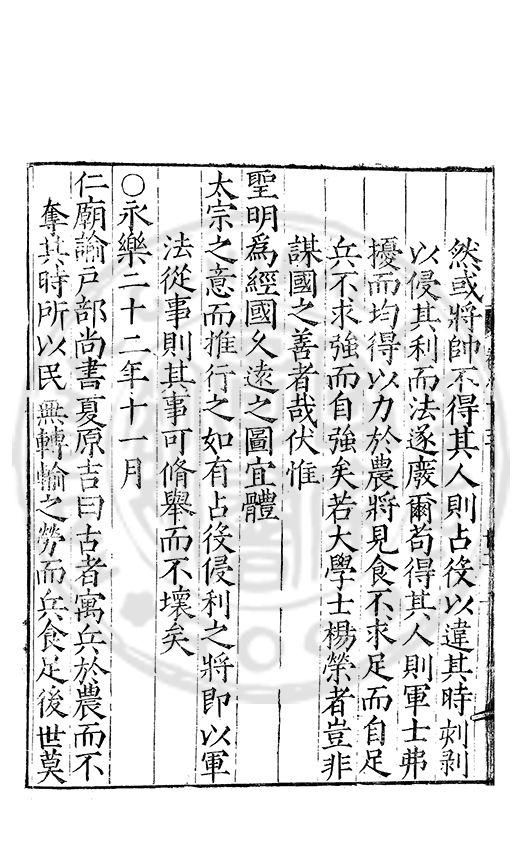 然或將帥不得其人則占役以違其時刺剥
以侵其利而法遂廢爾茍得其人則軍士弗
擾而均得以力於農將見食不求足而自足
兵不求強而自強矣若大學士楊榮者豈非
謀國之善者哉伏惟
聖明爲經國久遠之圖宜體
太宗之意而推行之如有占役侵利之將即以軍
法從事則其事可脩舉而不壞矣
○永樂二十二年十一月
仁廟諭戸部尚書夏原吉曰古者寓兵於農而不
奪其時所以民無轉輸之勞而兵食足後世莫